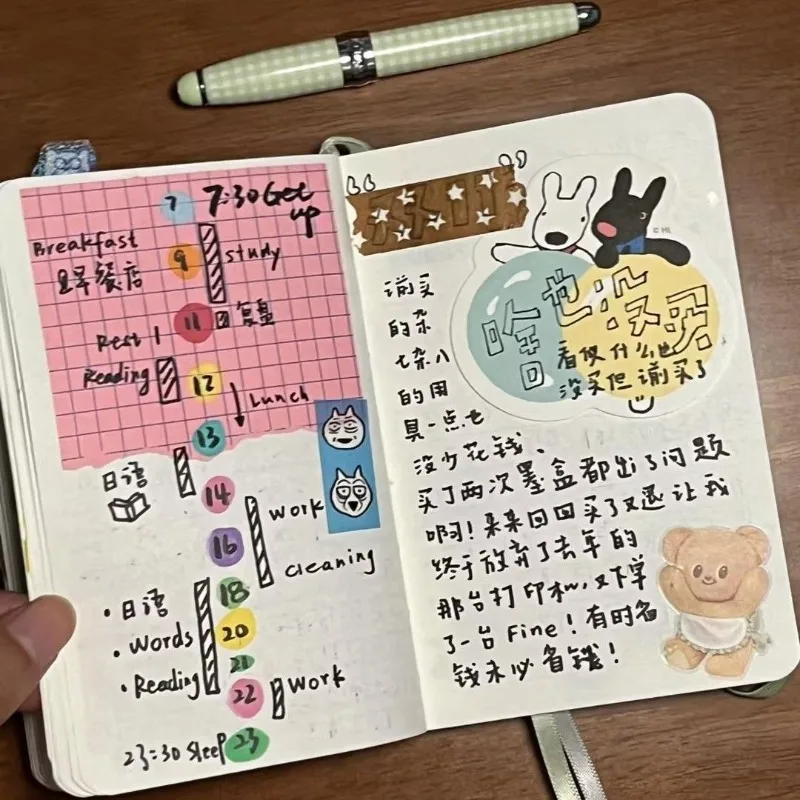 7
7:30 Get
up
Breakfast
早餐店
9
study
11
复盘
Rest 1
Reading
12
Lunch
13
日语
14
work
16
cleaning
18
• 日语
• words
20
21
• Reading
22
work
23:30 sleep
23
“双11”
啥也没买
看似什么也
没买但买了
© HL
买
的杂
七杂八
的用
具一点也
没少花钱、
买了两次墨盒都出了问题
啊!来来回回买了又退让我
终于放弃了去年的
那台打印机,又下单
了一台 Fine!有时省
钱未必省钱!